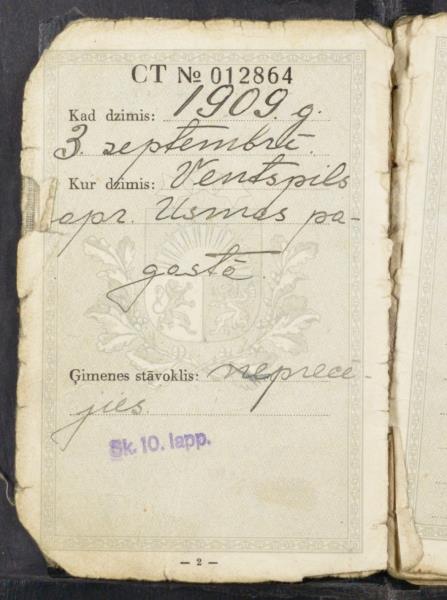 CT № 012864
Kad dzimis: 1909. g.
3. septembrī.
Kur dzimis: Ventspils
apr. Usmas pa-
gastā.
Ģimenes stāvoklis: neprecē-
jies
Sk. 10. lapp.
— 2 —